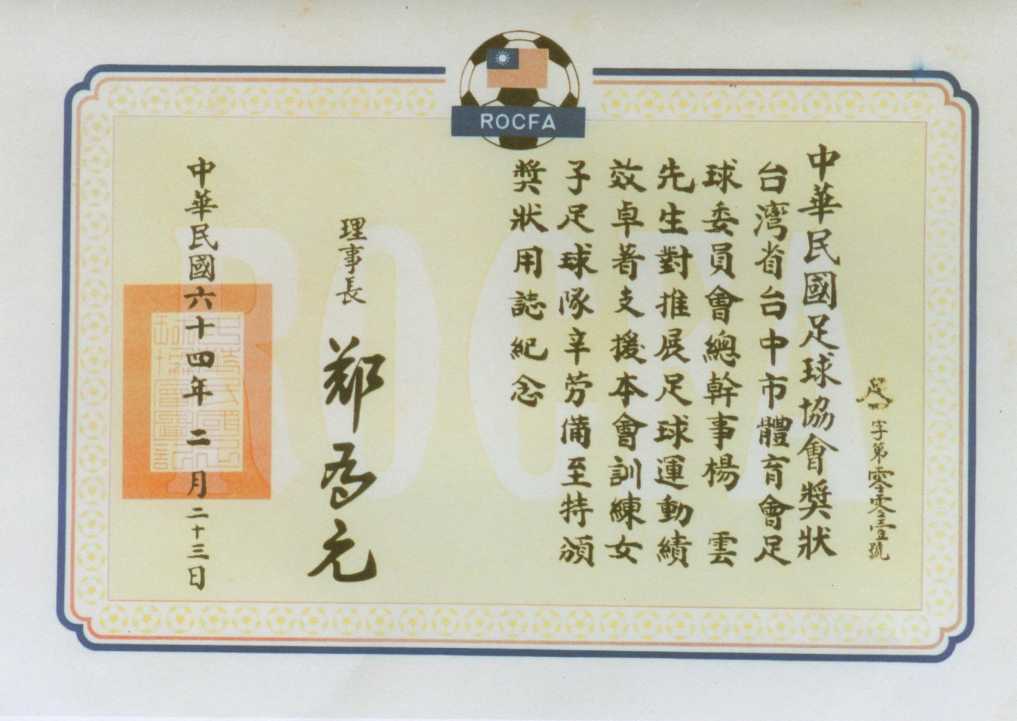 ROCFA
足四字第零零壹號
中華民國足球協會獎狀
台灣省台中市體育會足
球委員會總幹事楊 雲
先生對推展足球運動績
效卓著支援本會訓練女
子足球隊辛勞備至特頒
獎狀用誌紀念
理事長 鄭為元
中華民國六十四年二月二十三日
ROCFA